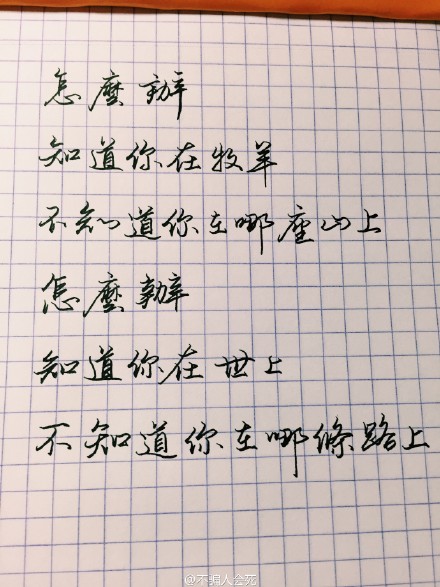 怎麼辦
知道你在牧羊
不知道你在哪座山上
怎麼辦
知道你在世上
不知道你在哪條路上
@不骗人会死